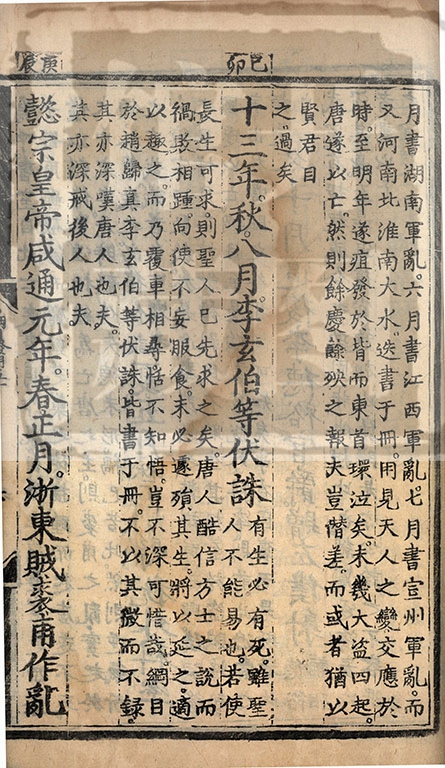 己卯
月書湖南軍亂。六月書江西軍亂。七月書宣州軍亂。而
又河南北淮南大水。迭書于冊。用見天人之變。交應於
時。至明年遂疽發於背而東首環泣矣。未幾大盜四起。
唐遂以亡。然則餘慶餘殃之報。夫豈僭差。而或者猶以
賢君目
之。過矣
十三年。秋。八月。李玄伯等伏誅
有生必有死。雖聖
人不能易也。若使
長生可求。則聖人已先求之矣。唐人酷信方士之說。而
禍敗相踵。向使不妄服食。未必遽殞其生。將以延之。適
以趣之。而乃覆車相尋。恬不知悟。豈不深可惜哉。綱目
於趙歸真李玄伯等伏誅。皆書于冊。不以其微而不錄。
其亦深漢唐人也夫。
其亦深戒後人也夫
庚辰
懿宗皇帝咸通元年。春。正月。浙東賊裘甫作亂